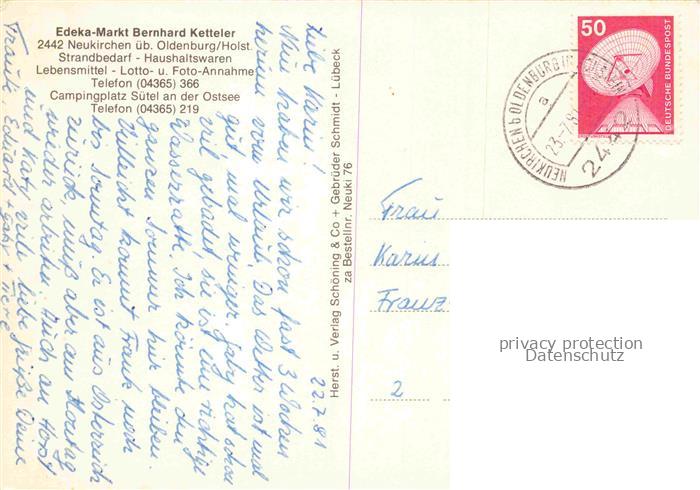 Edeka-Markt Bernhard Ketteler
2442 Neukirchen üb. Oldenburg/Holst.
Strandbedarf - Haushaltswaren
Lebensmittel - Lotto- u. Foto-Annahme
Telefon (04365) 366
Campingplatz Sütel an der Ostsee
Telefon (04365) 219
22.7.81
Liebe Karin!
Nun haben wir schon fast 3 Wochen
herum vom Urlaub. Das Wetter ist mal
gut mal weniger. Gaby hat schon
viel gebadet, sie ist eine richtige
Wasserratte. Ich könnte den
ganzen Sommer hier bleiben.
Vielleicht kommt Frank noch
bis Sonntag. Er ist aus Österreich
zurück, muß aber am Montag
wieder arbeiten. Auch an Horst
und Katy viele liebe Grüße Deine
Traute, Eduard + Gaby + Tiere
Herst. u. Verlag Schöning & Co + Gebrüder Schmidt - Lübeck
za Bestellnr. Neuki 76
50
DEUTSCHE BUNDESPOST
NEUKIRCHEN b OLDENBURG IN HOLSTEIN
a
23.-7.8
2442
Frau
Karin
Franz
2
privacy protection
Datenschutz